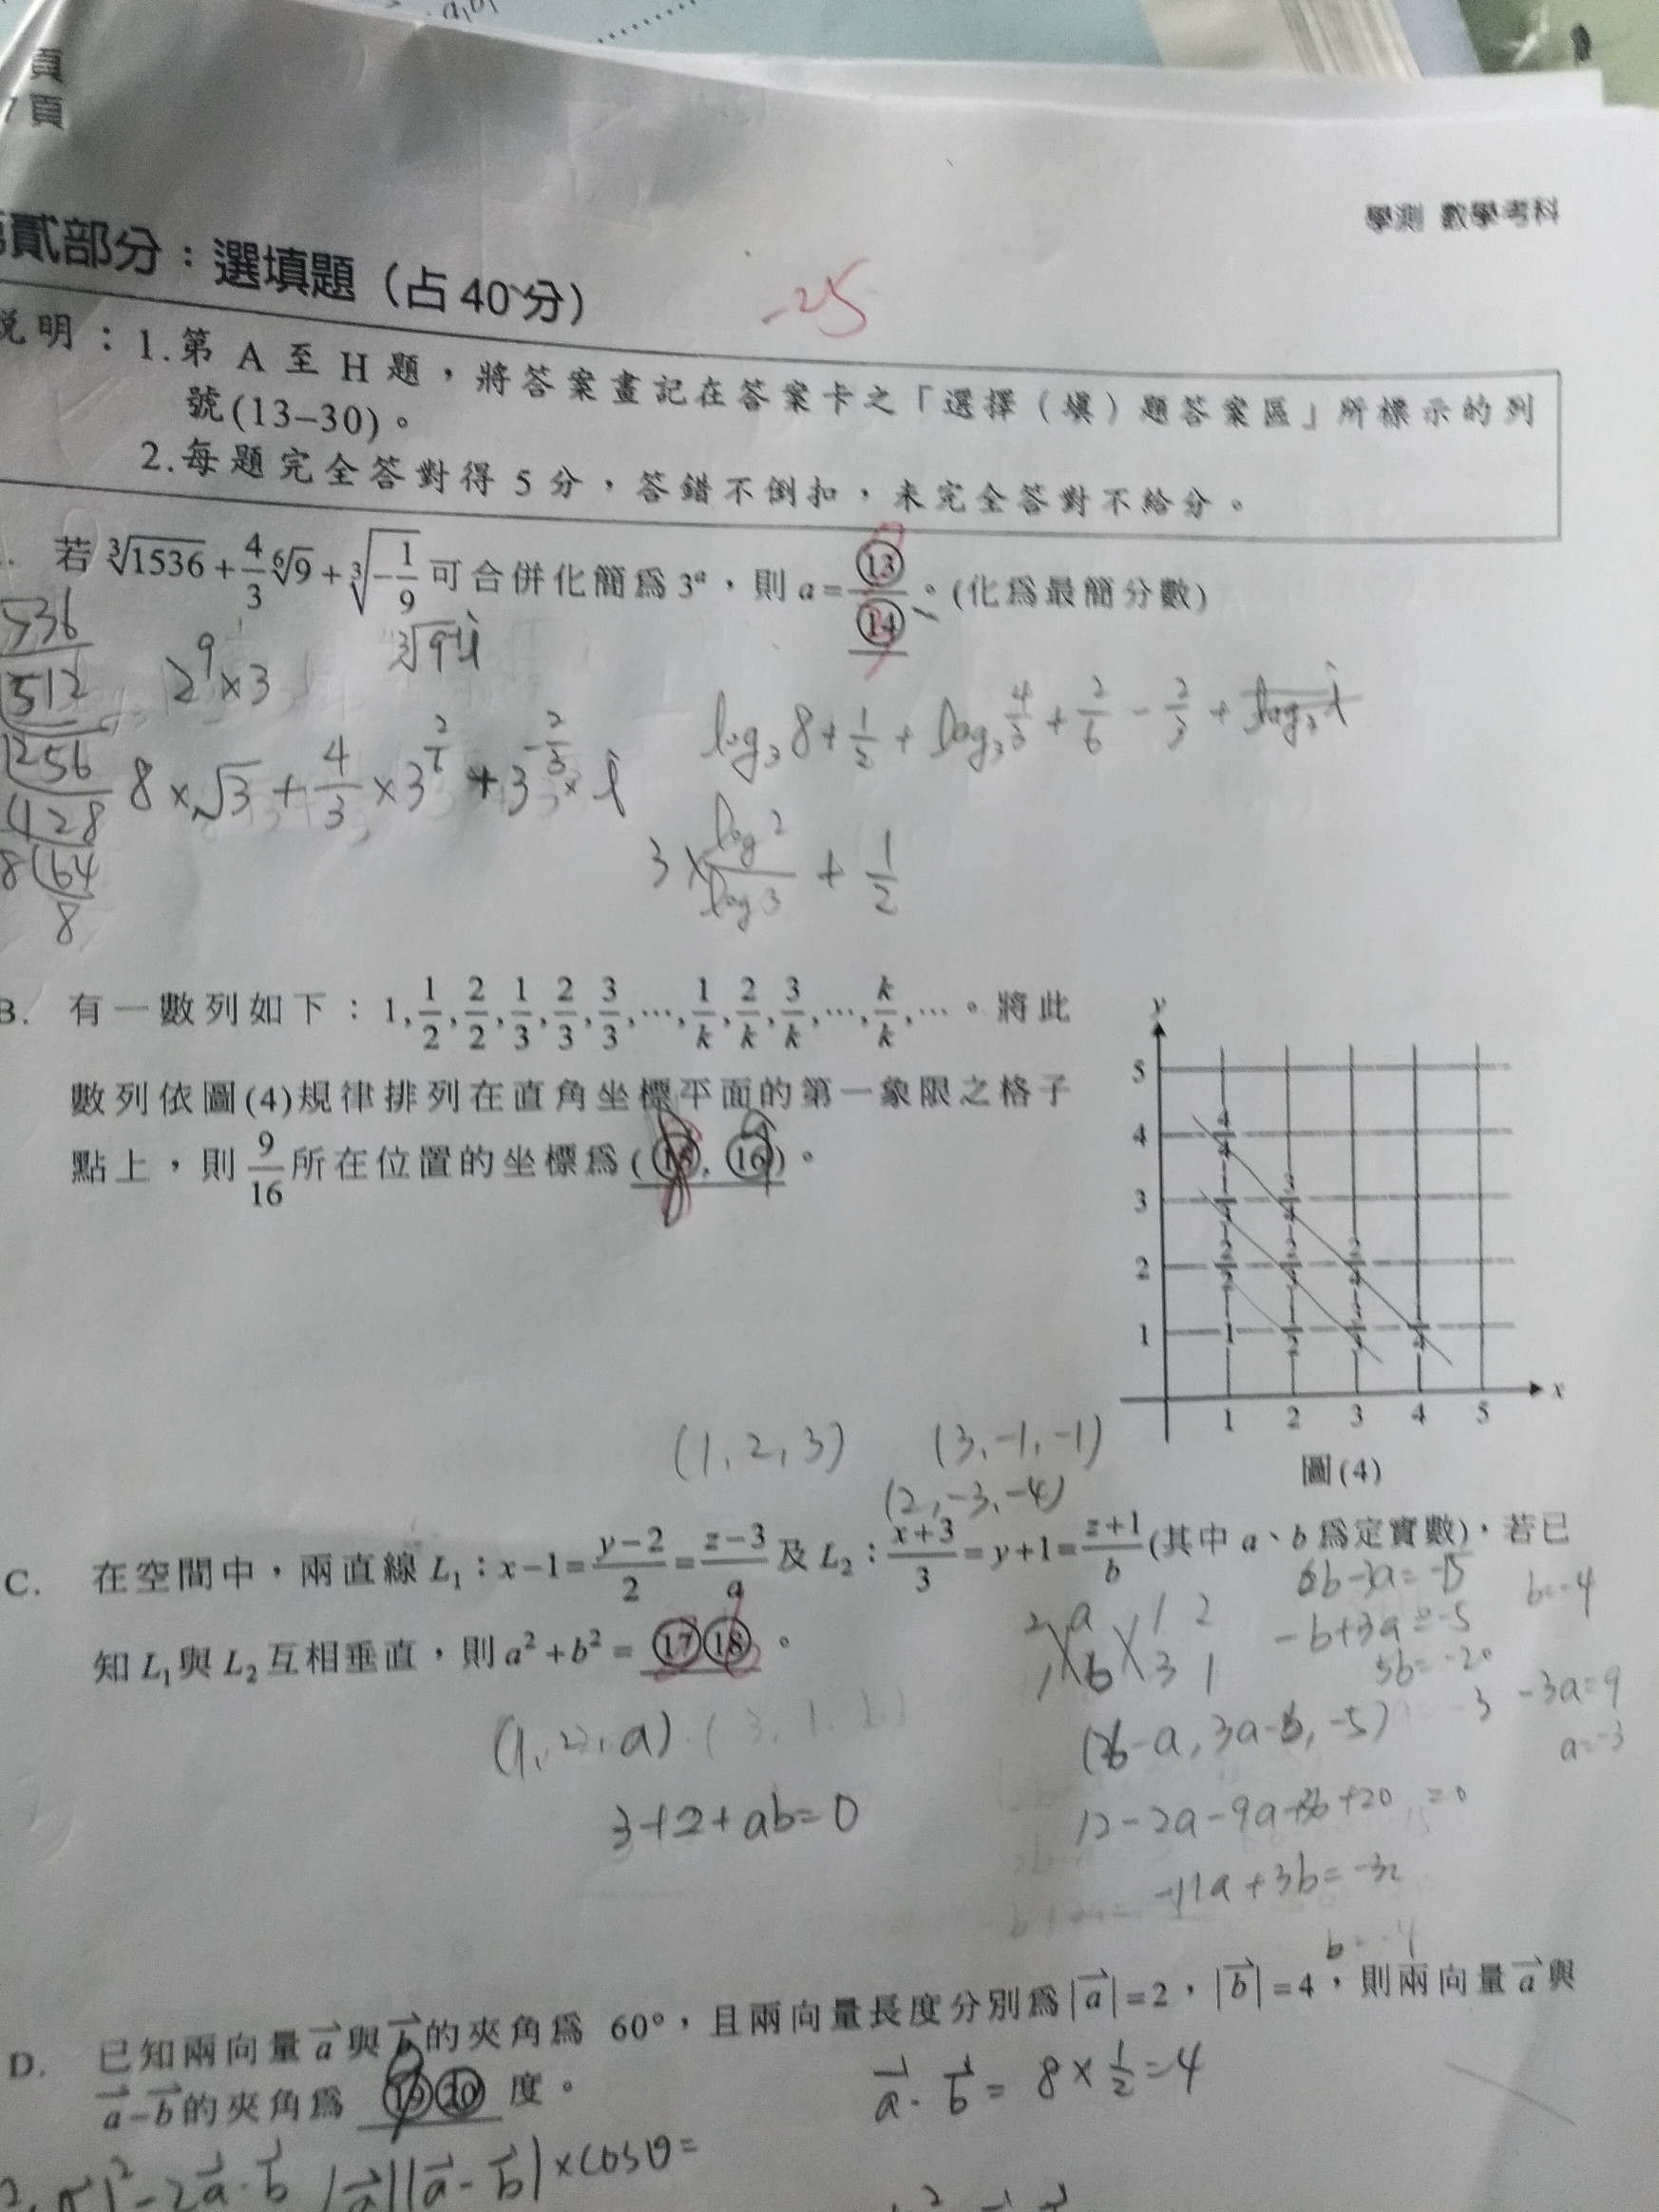 頁
頁
學測 數學考科
貳部分：選填題（占 40 分）
-25
說明：1.第 A 至 H 題，將答案畫記在答案卡之「選擇（填）題答案區」所標示的列
號(13–30)。
2.每題完全答對得 5 分，答錯不倒扣，未完全答對不給分。
若 ∛1536 + 4/3 ⁶√9 + ∛(-1/9) 可合併化簡為 3^a，則 a = ⑬/⑭。(化為最簡分數)
536
512
256
128
8 64
8
2^9×3
8×√3 + 4/3 ×3^
log₃8 + 1/2 + log₃ 4/3 + 2/6 - 2/3 +
3× log2/log3 + 1/2
B. 有一數列如下：1, 1/2, 2/2, 1/3, 2/3, 3/3, …, 1/k, 2/k, 3/k, …, k/k, …。將此
數列依圖(4)規律排列在直角坐標平面的第一象限之格子
點上，則 9/16 所在位置的坐標為 (⑮, ⑯)。
y
5
4
3
2
1
x
1 2 3 4 5
圖(4)
(1, 2, 3) (3, -1, -1)
(2, -3, -4)
C. 在空間中，兩直線 L₁：x-1 = (y-2)/2 = (z-3)/a 及 L₂：(x+3)/3 = y+1 = (z+1)/b (其中 a、b 為定實數)，若已
知 L₁ 與 L₂ 互相垂直，則 a²+b² = ⑰⑱。
6b-3a=-15
b=-4
-b+3a=-5
5b=-20
2 a 1 2
1 b 3 1
(2b-a, 3a-b, -5)
-3a=9
a=-3
(1, 2, a)·(3, 1, b)
3+2+ab=0
12-2a-9a+3b+20=0
-11a+3b=-32
b=-4
D. 已知兩向量 a 與 b 的夾角為 60°，且兩向量長度分別為 |a|=2，|b|=4，則兩向量 a 與
a-b 的夾角為 ⑲⑳ 度。
a·b = 8×1/2=4
-2a·b |a||a-b|×cosθ=